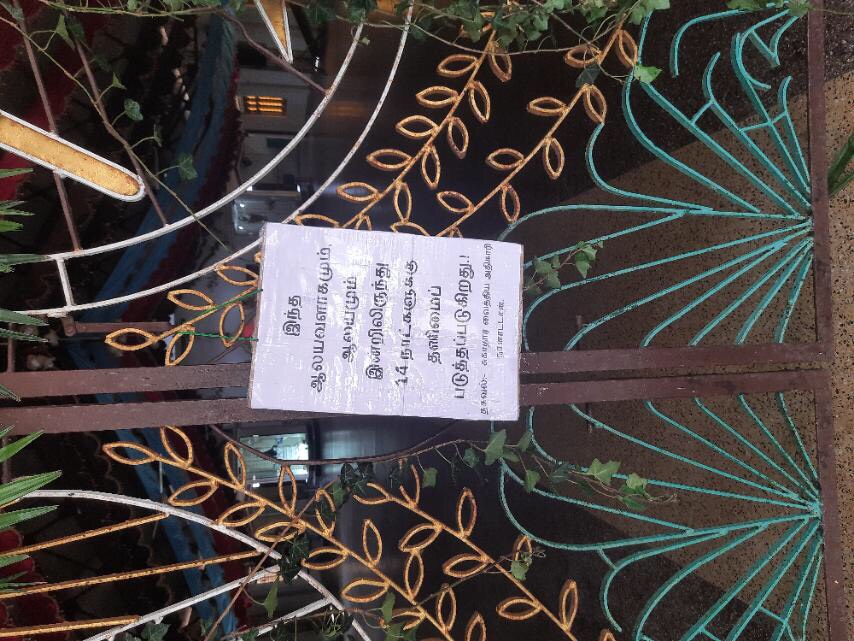 இந்த
ஆலயவளாகமும்,
ஆலயமும்
இன்றிலிருந்து
14 நாட்களுக்கு
தனிமைப்
படுத்தப்படுகிறது.!
தகவல்:- சுகாதார வைத்திய அதிகாரி